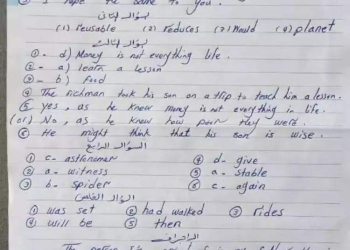 I hope the same to you.
السؤال الثانى
(1) reusable (2) reduces (3) Would (4) planet
السؤال الثالث
①- d) Money is not everything life.
②- a) learn a lesson
③- b) food
④ The richman took his son on a trip to teach him a lesson.
⑤ yes, as he know money is not everything in life.
(or) No, as he know how poor they were.
⑥ He might think that his son is wise.
السؤال الرابع
① c- astronomer ④ d- give
② a- witness ⑤ a- stable
③ b- spider ⑥ c- again
السؤال الخامس
① was set ② had walked ③ rides
④ will be ⑤ then